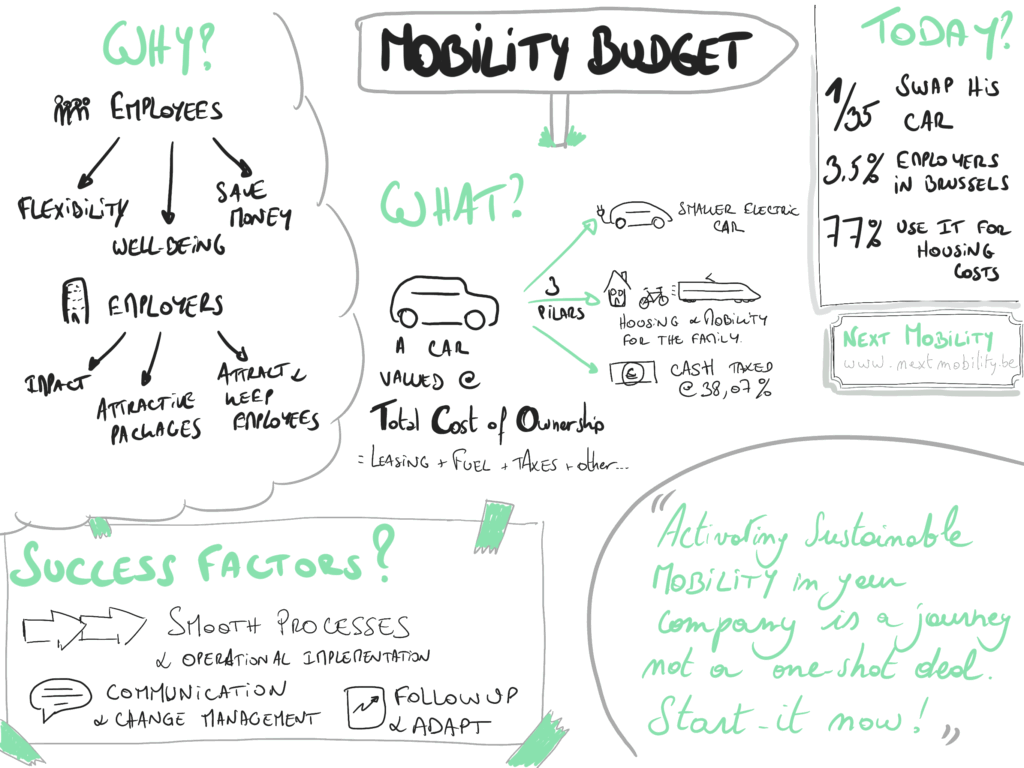 MOBILITY BUDGET
WHY?
EMPLOYEES
FLEXIBILITY
WELL-BEING
SAVE
MONEY
EMPLOYERS
IMPACT
ATTRACTIVE
PACKAGES
ATTRACT &
KEEP
EMPLOYEES
WHAT?
A CAR
VALUED @
Total Cost of Ownership
= LEASING + FUEL + TAXES + other...
3
PILARS
SMALLER ELECTRIC
CAR
HOUSING & MOBILITY
FOR THE FAMILY.
€
CASH TAXED
@ 38,07%
TODAY?
1/35 SWAP HIS
CAR
3.5% EMPLOYERS
IN BRUSSELS
77% USE IT FOR
HOUSING
COSTS
NEXT MOBILITY
www.nextmobility.be
SUCCESS FACTORS?
SMOOTH PROCESSES
& OPERATIONAL IMPLEMENTATION
COMMUNICATION
& CHANGE MANAGEMENT
FOLLOW UP
& ADAPT
"Activating Sustainable
MOBILITY in your
company is a journey
not a one-shot deal.
Start-it now!"